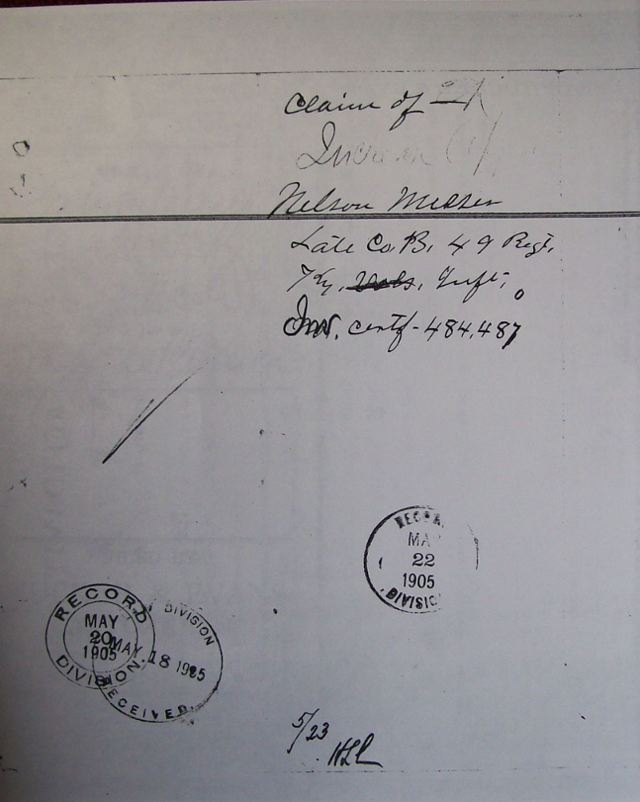 Claim of
Nelson Messer
Late Co B, 49 Regt.
Ky. Vols, Inft,
Inv. certf- 484,487
RECORD
MA
22
1905
DIVISIO
RECORD
MAY
20
1905
DIVISION
DIVISION
MAY 18 1905
RECEIVED
5/23